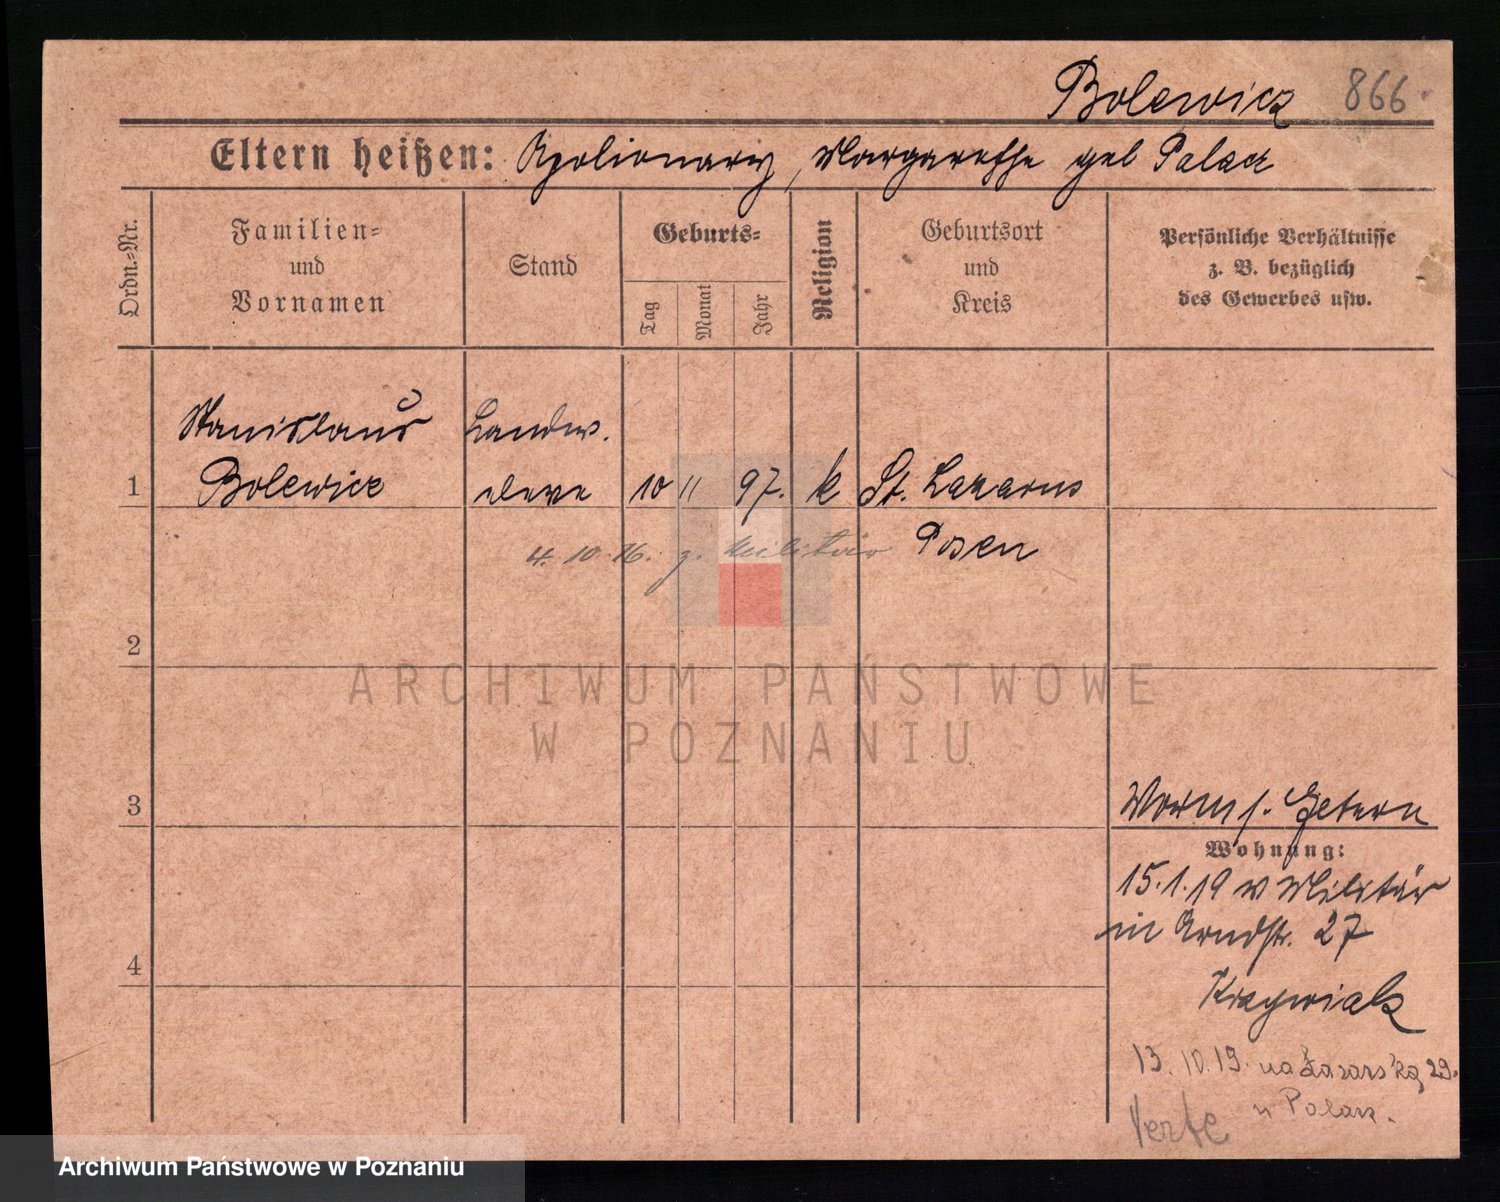 Bolewicz 866
Eltern heißen: Apolionary, Margarethe geb Palacz
Ordn.-Nr.
Familien-
und
Vornamen
Stand
Geburts-
Tag
Monat
Jahr
Religion
Geburtsort
und
Kreis
Persönliche Verhältnisse
z. B. bezüglich
des Gewerbes usw.
Stanislaus Landw.
1 Bolewicz eleve 10 11 97. k St. Lazarus
4. 10. 16. z. Militär Posen
2
ARCHIWUM PAŃSTWOWE
W POZNANIU
3
Wohnung:
15.1.19 v Militär
in Arndtstr. 27
4
13. 10. 19. na Łazarską 29.
u Palacz.
Verte
Archiwum Państwowe w Poznaniu